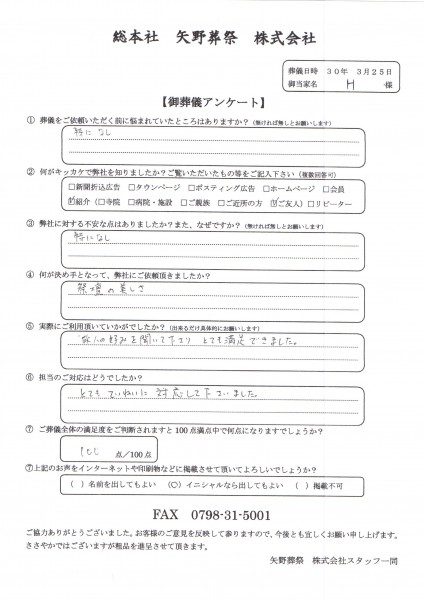 総本社 矢野葬祭 株式会社
葬儀日時 30年 3月25日
御当家名 H 様
【御葬儀アンケート】
① 葬儀をご依頼いただく前に悩まれていたところはありますか？（無ければ無しとお願いします）
特になし
② 何がキッカケで弊社を知りましたか？ご覧いただいたもの等をご記入下さい（複数回答可）
□新聞折込広告 □タウンページ □ポスティング広告 □ホームページ □会員
☑紹介（□寺院 □病院・施設 □ご親族 □ご近所の方 ☑ご友人）□リピーター
③ 弊社に対する不安な点はありましたか？また、なぜですか？（無ければ無しとお願いします）
特になし
④ 何が決め手となって、弊社にご依頼頂きましたか？
祭壇の美しさ
⑤ 実際にご利用頂いていかがでしたか？（出来るだけ具体的にお願いします）
故人の好みを聞いて下さり とても満足できました。
⑥ 担当のご対応はどうでしたか？
とてもていねいに対応して下さいました。
⑦ ご葬儀全体の満足度をご判断されますと100点満点中で何点になりますでしょうか？
100 点/100点
⑦上記のお声をインターネットや印刷物などに掲載させて頂いてよろしいでしょうか？
（ ）名前を出してもよい （○）イニシャルなら出してもよい （ ）掲載不可
FAX 0798-31-5001
ご協力ありがとうございました。お客様のご意見を反映して参りますので、今後とも宜しくお願い申し上げます。
ささやかではございますが粗品を進呈させて頂きます。
矢野葬祭 株式会社スタッフ一同